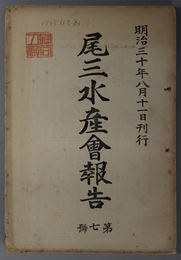 明治三十年八月十一日刊行
尾三水產會報告
第七號